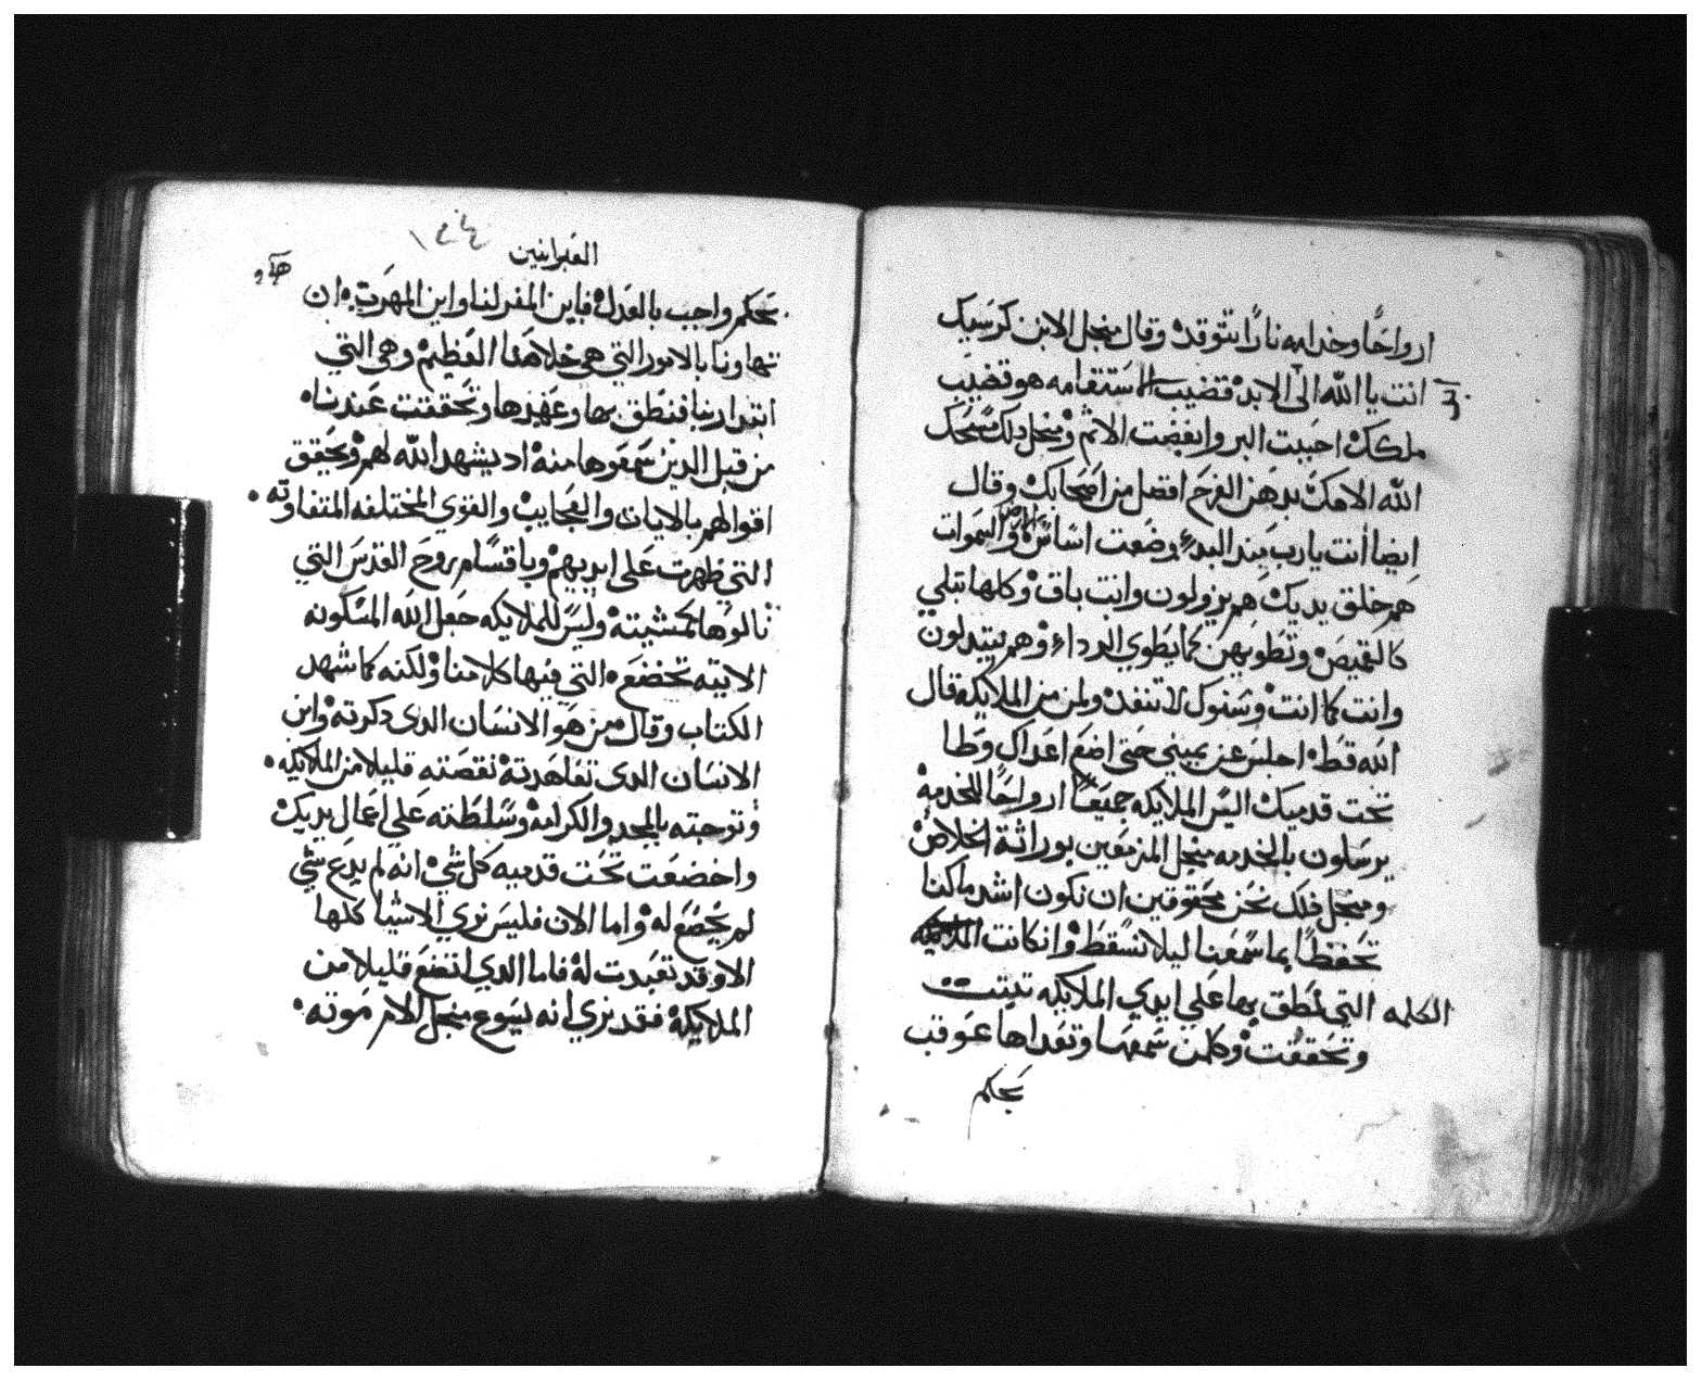 ارواحًا وخدامه نارًا تتوقد وقال منجل الابن كرسيك
انت يا الله الى الابد قضيب الاستقامه هو قضيب
ملكك احببت البر وابغضت الاثم ومنجل دلك مسحك
الله الاهك بدهن الفرح افضل من اصحابك وقال
ايضا انت يارب مند البدء وضعت اساس الارض والسموات
هم خلق يديك هم يزولون وانت باق وكلها تبلي
كالقميص وتطويهن كما يطوي الرداء وهم يتبدلون
وانت كما انت وسنوك لا تنفد ولمن من الملايكه قال
الله قط اجلس عن يميني حتى اضع اعداك وطا
تحت قدميك اليس الملايكه جميعًا ارواحًا للخدمه
يرسلون بالخدمه منجل المزمعين بوراثة الخلاص
ومنجل دلك نحن محقوقين ان نكون اشد ما كنا
تحفظًا بما سمعنا ليلا نسقط وان كانت
الكلمه التي نطق بها على ايدي الملايكه تبتت
وتحققت وكلمن سمعها وتعداها عوقب
بحكم
العبرانيين
بحكم واجب بالعدل فاين المفر لنا واين المهرب ان
تهاونا بالامور التي هي خلاصنا العظيم وهي التي
ابتدا ربنا فنطق بها وعهدها وتحققت عندنا
من قبل الدين سمعوها منه اد يشهد الله لهم وتحقيق
اقوالهم بالايات والعجايب والقوي المختلفه المتفاوته
التي ظهرت على ايديهم وباقسام روح القدس التي
نالوها كمشيته وليس للملايكه جعل الله المسكونه
الاتيه تخضع التي فيها كلامنا ولكنه كما شهد
الكتاب وقال من هو الانسان الدى دكرته وابن
الانسان الدى تعاهدته نقصته قليلا من الملايكه
وتوجته بالمجد والكرامه وسلطته على اعمال يديك
واخضعت تحت قدميه كل شي انه لم يدع شي
لم يخضع له واما الان فليس نري الاشيا كلها
الا وقد تعبدت له فاما الدي اتضع قليلا من
الملايكه فقد نري انه يسوع منجل الام موته